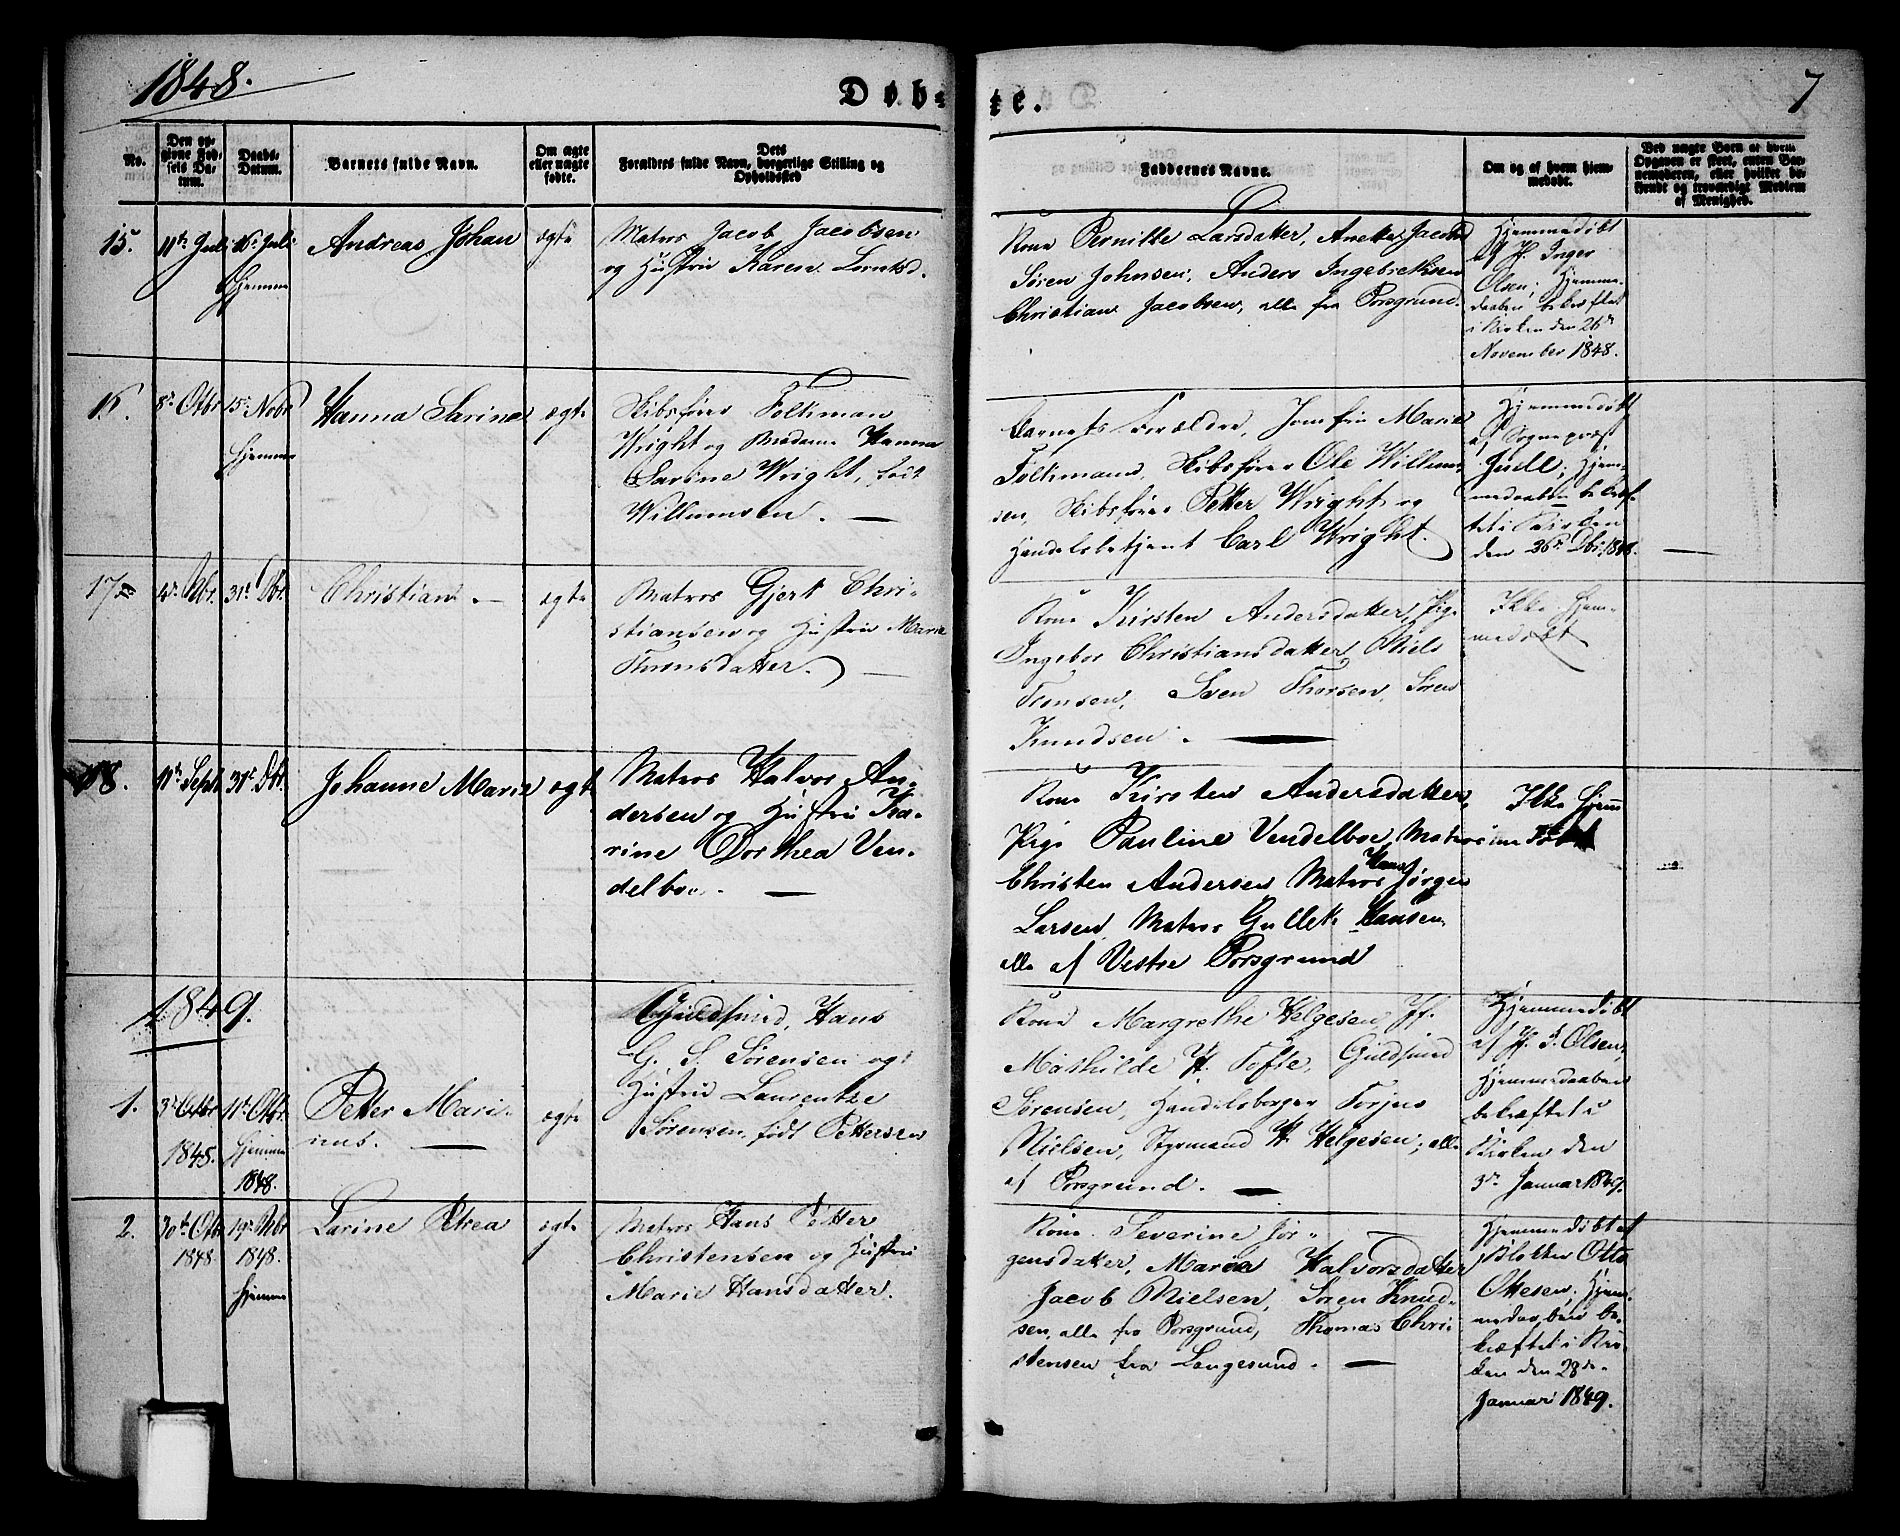 1848.
Døb-
te.
7
No.
Den op-
givne Fød-
sels Da-
tum.
Daabs-
Datum.
Barnets fulde Navn.
Om ægte
eller uægte
fødte.
Dets
Forældres fulde Navn, borgerlige Stilling og
Opholdssted
Faddernes Navne.
Om og af hvem hjem-
medøbt.
Ved uægte Børn af hvem
Opgaven er skeet, enten Bar-
nemoderen, eller hvilket be-
kjendt og troværdigt Medlem
af Menighed.
15.
11te Juli
16de Juli
Hjemme
Andreas Johan
ægte
Matros Jacob Jacobsen
og Hustru Karen Lorntsd.
Kone Pernille Larsdatter, Anette Jacobsd
Søren Johnsen, Anders Ingebrethsen
Christian Jacobsen, alle fra Porsgrund.
Hjemmedøbt
af J. Inger
Olsen; Hjemme-
daaben bekræftet
i Kirken den 26de
November 1848.
16.
8de Otbr
15de Nobr
Hjemme
Hanna Sarine
ægte
Skibsfører Foltiman
Wright og Madame Hanna
Sarine Wright, født
Willumsen. —
Barnets Forældre, Jomfru Marie
Foltimand, Skibsfører Ole Willum-
sen, Skibsfører Petter Wright og
Handelsbetjent Carl Wright.
Hjemmedøbt
af Sognepræst
Juell; Hjem-
medaaben bekræf-
tet i Kirken
den 26de Dbr. 1848.
17
31te Dbr.
Christian. —
ægte
Matros Gjert Chri-
stiansen og Hustru Marie
Thronsdatter. —
Kone Kirsten Andersdatter, Pige
Ingebor Christiansdatter, Niels
Tronsen, Sven Thorsen, Søren
Knudsen. —
Ikke hjem-
medøbt
18.
11te Septb
31te Dbr.
Johanne Marie
ægte
Matros Halvor An-
dersen og Hustru Ka-
rine Dorthea Ven-
delboe. —
Kone Kirsten Andersdatter,
Pige Pauline Vendelboe, Matros
Christen Andersen Matros Hans Jørgen
Larsen, Matros Gullek Hansen,
alle af Vestre Porsgrund
Ikke hjem
medøbt
1849.
1.
3de Otbr
1848.
11te Otbr.
Hjemme
1848.
Petter Mari-
nus. —
ægte
Guldsmed, Hans
G. S. Sørensen og
Hustru Laurentze
Sørensen, født Pettersen
Kone Margrethe Helgesen, Jf.
Mathilde H. Tofte, Guldsmed
Sørensen, Handelsborger Torjus
Nielsen, Styrmand H. Helgesen, alle
af Porsgrund. —
Hjemmedøbt
af J. I. Olsen,
Hjemmedaaben
bekræftet i
Kirken den
3de Januar 1849.
2.
30te Otbr
1848.
19de Nbr
1848.
Hjemme
Larine Petrea
ægte
Matros Hans Petter
Christensen og Hustru
Marie Hansdatter.
Kone Severine Jør-
gensdatter, Maria Halvorsdatter
Jacob Nielsen, Søren Knud-
sen, alle fra Porsgrund, Thomas Chri-
stensen fra Langesund. —
Hjemmedøbt af
Klokker Otto
Ottesen, Hjem-
medaaben be-
kræftet i Kir-
ken den 28de
Januar 1849.